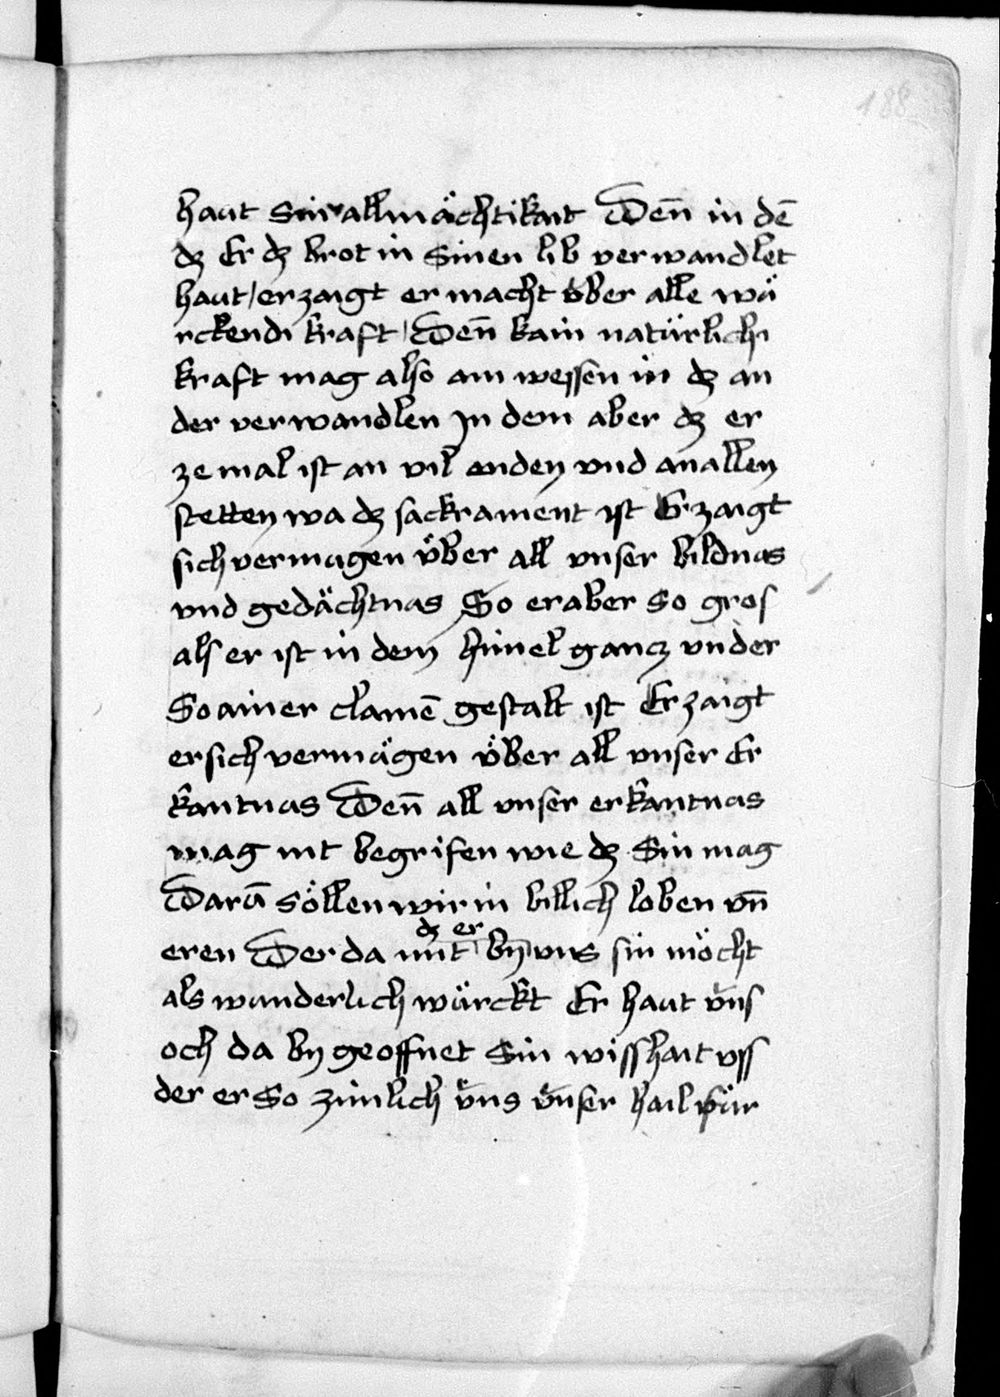 188
haut Sin allmächtikait Den̄ in dē
dz Er dz brot in Sinen lib verwandlet
haut / erzaigt er macht v̈ber alle wü
rckendi kraft / Den̄ kain natürlichi
kraft mag also ain wessen in dz an
der verwandlen Jn dem aber dz er
ze mal ist an vil enden vnd an allen
stetten wa dz sackrament ist Erzaigt
sich vermugen v̈ber all vnser bildnus
vnd gedächtnus So er aber so gros
als er ist in dem himel gancz vnder
So ainer clainē gestalt ist Erzaigt
er sich vermägen v̈ber all vnser Er
kantnus Den̄ all vnser erkantnus
mag nit begrifen wie dz Sin mag
Darū söllen wir in billich loben vn̄
eren Der da mit dz er by vns sin möcht
als wunderlich würckt Er haut v̈ns
och da by geoffnet Sin wisshait vss
der er So zimlich v̈ns v̈nser hail für